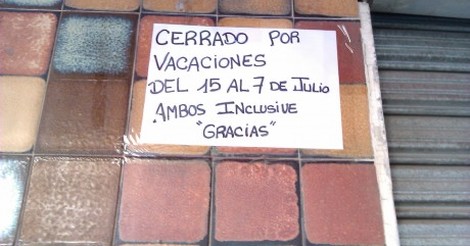 CERRADO POR
VACACIONES
DEL 15 AL 7 DE JULIO
AMBOS INCLUSIVE
"GRACIAS"